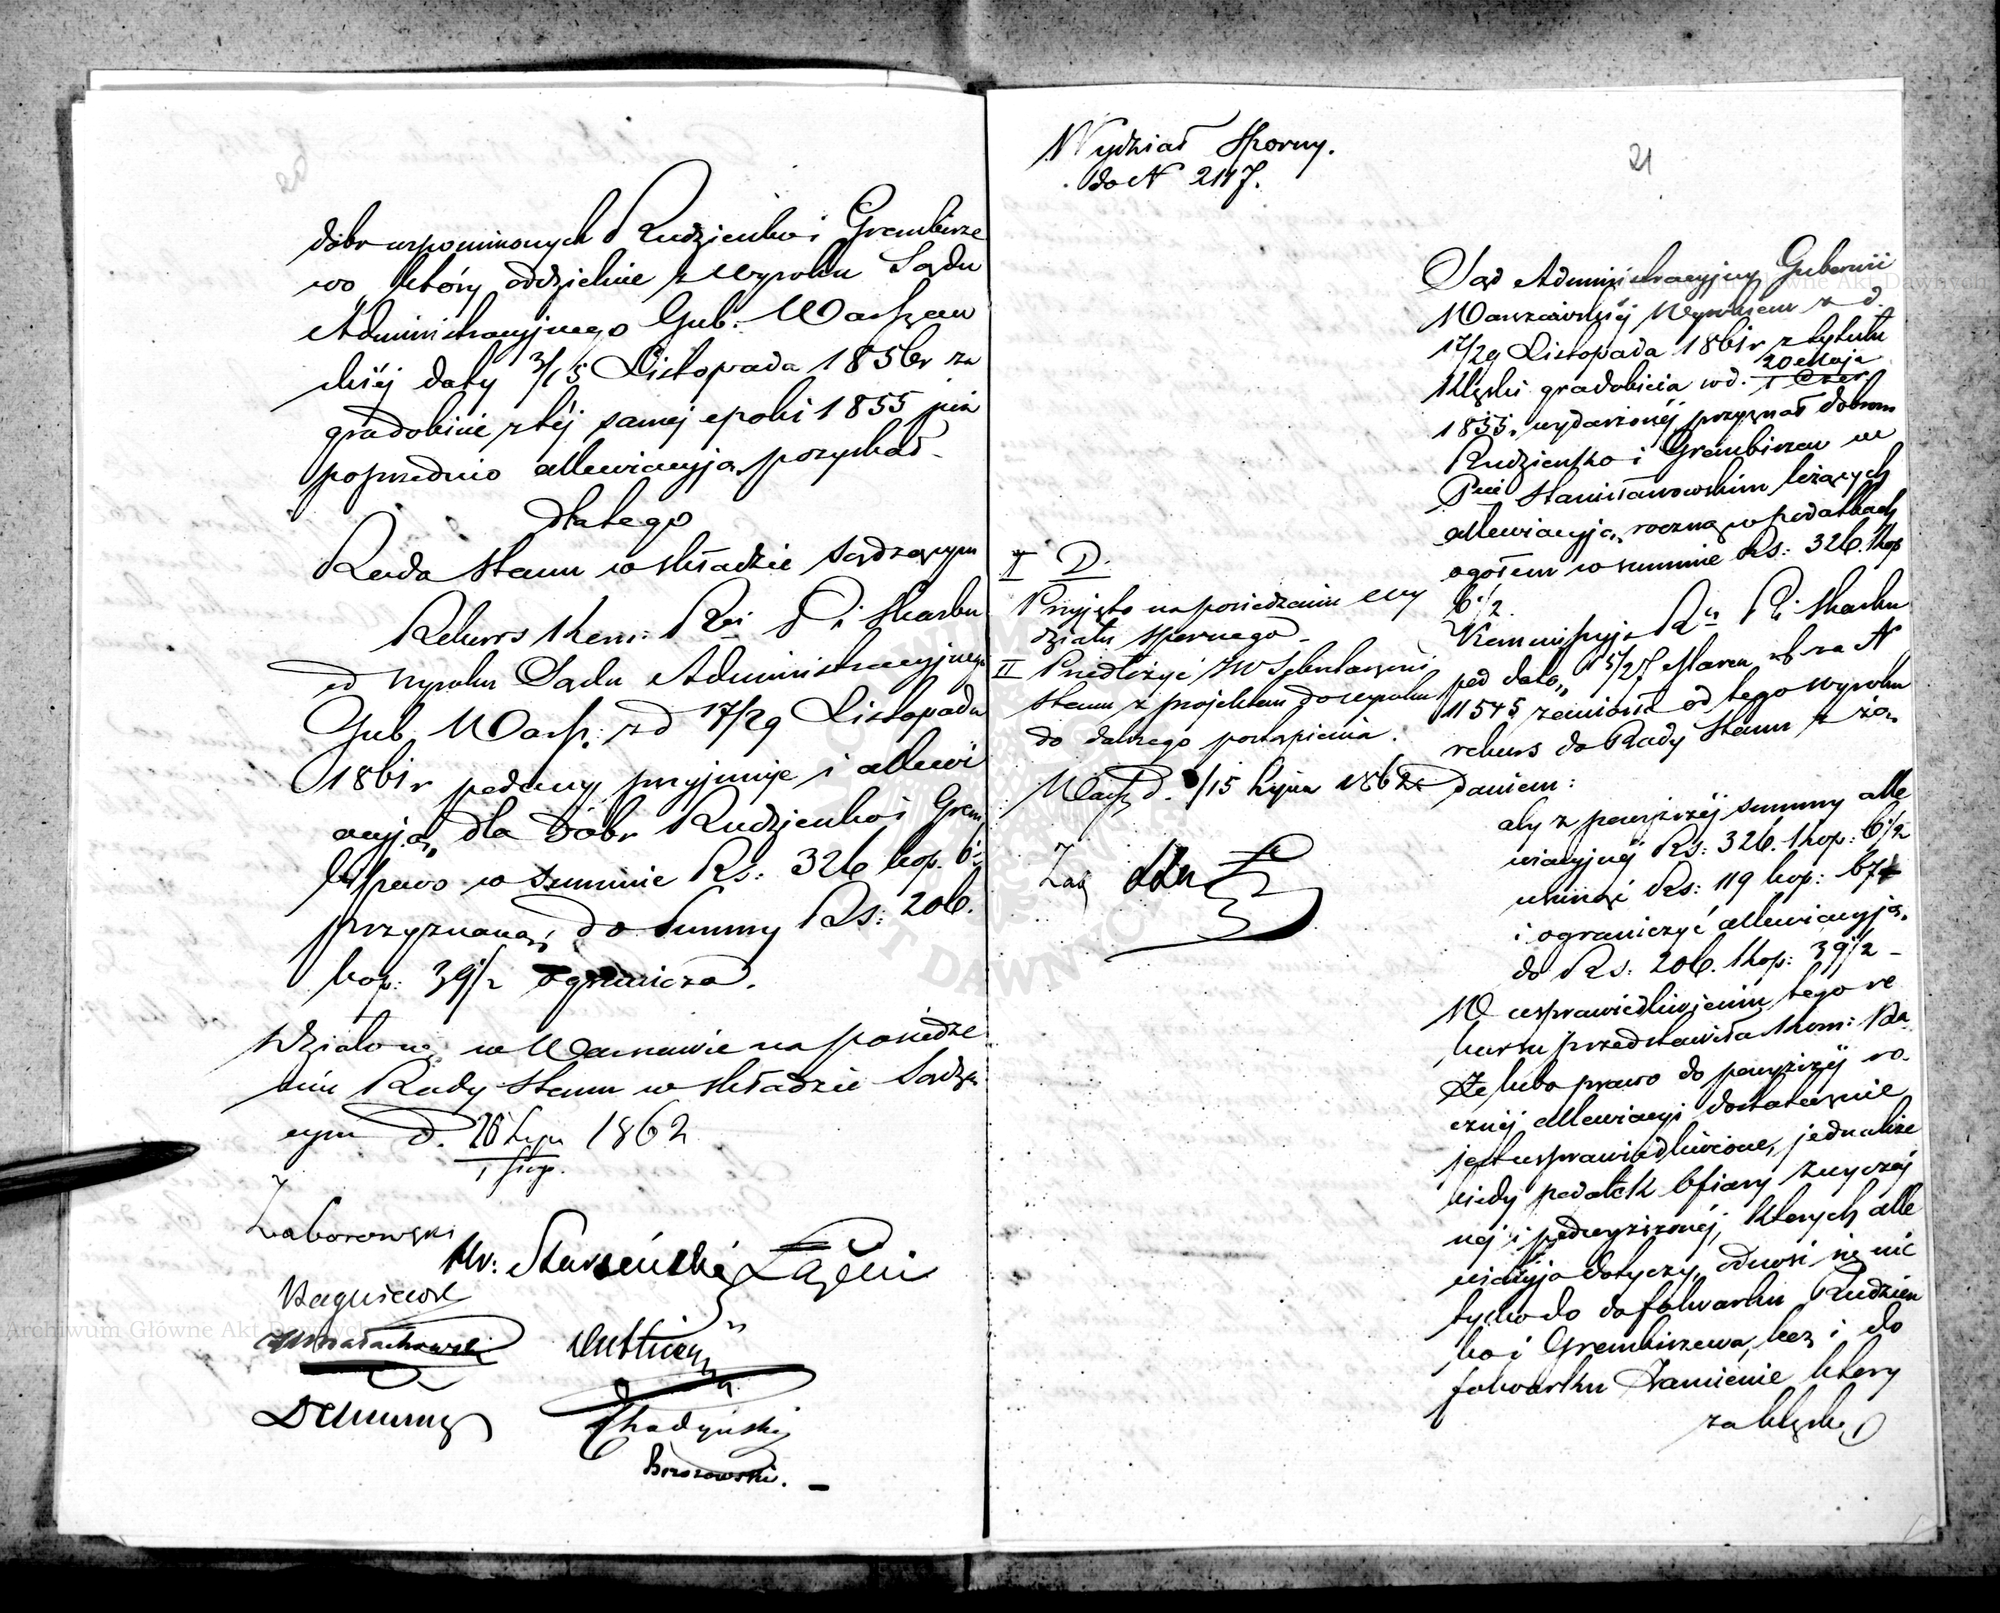 dóbr wspomnionych Rudzienko i Grembisze
wo, który oddzielnie z wyroku Sądu
Administracyjnego Gub: Warszaw
skiej daty 3/15 Listopada 1856r za
gradobicie z téj samej epoki 1855 już
poprzednio allewiacyją pozyskał –
dlatego
Rada Stanu w składzie Sądzącym
Rekurs Kom: Rei P. i Skarbu
od wyroku Sądu Administracyjnego
Gub. Warsz: z d 17/29 Listopada
1861r podany, przyjmuje i allewi
acyją, dla dóbr Rudzienko i Grem
biszewo w Summie Rs: 326 kop. 6½
przyznaną, do Summy Rs: 206.
kop: 39½ ogranicza.
Działo się w Warszawie na posiedze
niu Rady Stanu w składzie Sądzą
cym d. 20 Lipca / 1 Sierp. 1862
Zaborowski
Hr: Starzeński Łaski
Małachowski
Chadyński
Brzozowski. –
Wydział Sporny.
do N 2117.
21
I D.
Przyjęto na posiedzeniu Wy
działu Spornego –
II Przedłożyć JW Sekretarzowi
Stanu z projektem do wyroku
do dalszego postąpienia.
Warsz d. 3/15 Lipca 1862r
Sąd Administracyjny Gubernii
Warszawskiéj Wyrokiem z d.
17/29 Listopada 1861r z tytułu
Klęski gradobicia w d. 20 Maja / 1 Czer
1855. wydarzonéj przyznał dobrom
Rudzienko i Grembiszew w
Pcie Stanisławowskim leżących
allewiacyją, roczną w podatkach
ogółem w summie Rs: 326. kop
6½.
Kommissyja Ra P. i Skarbu
pod datą 15/27 Marca rb za N
11545 zaniosła od tego wyroku
rekurs do Rady Stanu z żą,
daniem:
aby z powyższéj summy alle
wiacyjnéj Rs: 326. kop: 6½
usunąć Rs: 119 kop: 67
i ograniczyć allewiacyją,
do Rs: 206. kop: 39½ –
W usprawiedliwieniu tego re
kursu przedstawiła Kom: Rza
że lubo prawo do powyższéj ro
cznéj allewiacyi dostatecznie
jest usprawiedliwione, jednakże
kiedy podatek ofiary zwyczaj
néj i podwyższonéj, których alle
wiacyja dotyczy, odnosi się nie
tylko do folwarku Rudzien
ko i Grembiszewa, lecz i do
folwarku Zamienie który
za klęskę